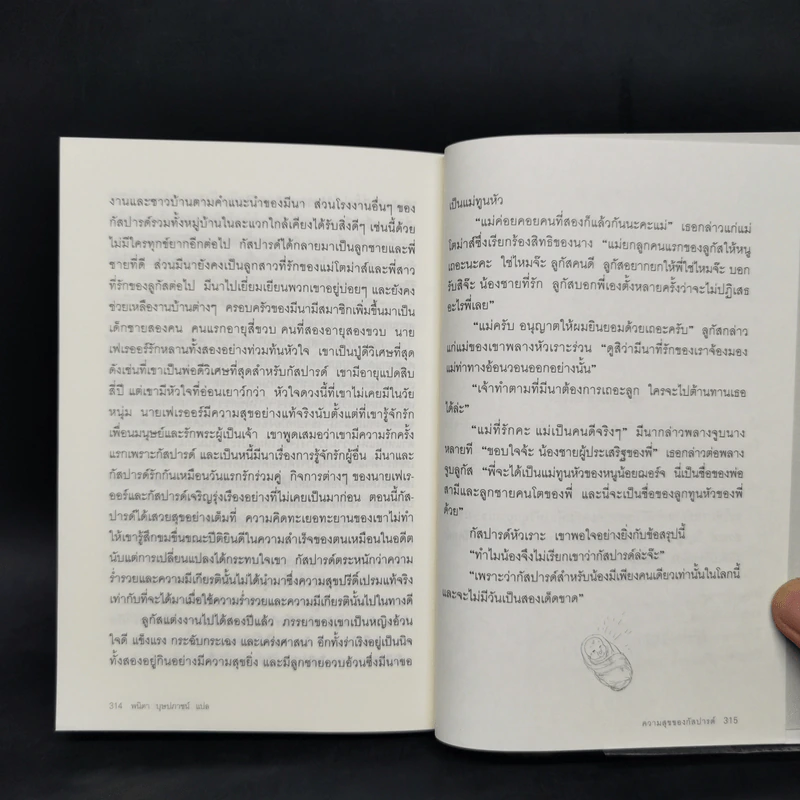 งานและชาวบ้านตามคำแนะนำของมีนา ส่วนโรงงานอื่นๆ ของ
กัสปารด์รวมทั้งหมู่บ้านในละแวกใกล้เคียงได้รับสิ่งดีๆ เช่นนี้ด้วย
ไม่มีใครทุกข์ยากอีกต่อไป กัสปารด์ได้กลายมาเป็นลูกชายและพี่
ชายที่ดี ส่วนมีนายังคงเป็นลูกสาวที่รักของแม่โตม่าส์และพี่สาว
ที่รักของลูกัสต่อไป มีนาไปเยี่ยมเยียนพวกเขาอยู่บ่อยๆ และยังคง
ช่วยเหลืองานบ้านต่างๆ ครอบครัวของมีนามีสมาชิกเพิ่มขึ้นมาเป็น
เด็กชายสองคน คนแรกอายุสี่ขวบ คนที่สองอายุสองขวบ นาย
เฟเรออร์รักหลานทั้งสองอย่างท่วมท้นหัวใจ เขาเป็นปู่ดีวิเศษที่สุด
ดังเช่นที่เขาเป็นพ่อดีวิเศษที่สุดสำหรับกัสปารด์ เขามีอายุแปดสิบ
สี่ปี แต่เขามีหัวใจที่อ่อนเยาว์กว่า หัวใจดวงนี้ที่เขาไม่เคยมีในวัย
หนุ่ม นายเฟเรออร์มีความสุขอย่างแท้จริงนับตั้งแต่ที่เขารู้จักรัก
เพื่อนมนุษย์และรักพระผู้เป็นเจ้า เขาพูดเสมอว่าเขามีความรักครั้ง
แรกเพราะกัสปารด์ และเป็นหนี้มีนาเรื่องการรู้จักรักผู้อื่น มีนาและ
กัสปารด์รักกันเหมือนวันแรกรักร่วมคู่ กิจการต่างๆ ของนายเฟเร
ออร์และกัสปารด์เจริญรุ่งเรืองอย่างที่ไม่เคยเป็นมาก่อน ตอนนี้กัส-
ปารด์ได้เสวยสุขอย่างเต็มที่ ความคิดทะเยอทะยานของเขาไม่ทำ
ให้เขารู้สึกขมขื่นขณะปีติยินดีในความสำเร็จของตนเหมือนในอดีต
นับแต่การเปลี่ยนแปลงได้กระทบใจเขา กัสปารด์ตระหนักว่าความ
ร่ำรวยและความมีเกียรตินั้นไม่ได้นำมาซึ่งความสุขปรีดิ์เปรมแท้จริง
เท่ากับที่จะได้มาเมื่อใช้ความร่ำรวยและความมีเกียรตินั้นไปในทางดี
ลูกัสแต่งงานไปได้สองปีแล้ว ภรรยาของเขาเป็นหญิงอ้วน
ใจดี แข็งแรง กระฉับกระเฉง และเคร่งศาสนา อีกทั้งร่าเริงอยู่เป็นนิจ
ทั้งสองอยู่กินอย่างมีความสุขยิ่ง และมีลูกชายอวบอ้วนซึ่งมีนาขอ
314 พนิดา บุษปภาชน์ แปล
เป็นแม่ทูนหัว
“แม่ค่อยคอยคนที่สองก็แล้วกันนะคะแม่” เธอกล่าวแก่แม่
โตม่าส์ซึ่งเรียกร้องสิทธิของนาง “แม่ยกลูกคนแรกของลูกัสให้หนู
เถอะนะคะ ใช่ไหมจ๊ะ ลูกัสคนดี ลูกัสอยากยกให้พี่ใช่ไหมจ๊ะ บอก
รับสิจ๊ะ น้องชายที่รัก ลูกัสบอกพี่เองตั้งหลายครั้งว่าจะไม่ปฏิเสธ
อะไรพี่เลย”
“แม่ครับ อนุญาตให้ผมยินยอมด้วยเถอะครับ” ลูกัสกล่าว
แก่แม่ของเขาพลางหัวเราะร่วน “ดูสิว่ามีนาที่รักของเราจ้องมอง
แม่ท่าทางอ้อนวอนออกอย่างนั้น”
“เจ้าทำตามที่มีนาต้องการเถอะลูก ใครจะไปต้านทานเธอ
ได้ล่ะ”
“แม่ที่รักคะ แม่เป็นคนดีจริงๆ” มีนากล่าวพลางจูบนาง
หลายที “ขอบใจจ้ะ น้องชายผู้ประเสริฐของพี่” เธอกล่าวต่อพลาง
จูบลูกัส “พี่จะได้เป็นแม่ทูนหัวของหนูน้อยฌอร์จ นี่เป็นชื่อของพ่อ
สามีและลูกชายคนโตของพี่ และนี่จะเป็นชื่อของลูกทูนหัวของพี่
ด้วย”
กัสปารด์หัวเราะ เขาพอใจอย่างยิ่งกับข้อสรุปนี้
“ทำไมน้องจึงไม่เรียกเขาว่ากัสปารด์ล่ะจ๊ะ”
“เพราะว่ากัสปารด์สำหรับน้องมีเพียงคนเดียวเท่านั้นในโลกนี้
และจะไม่มีวันเป็นสองเด็ดขาด”
ความสุขของกัสปารด์ 315